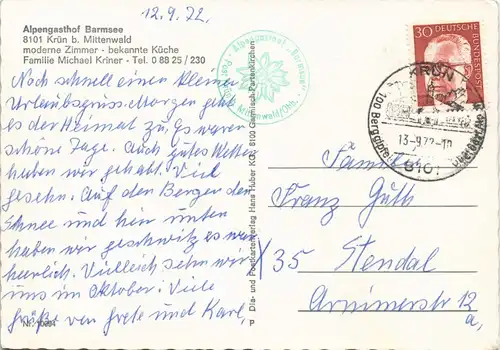 12.9.72.
Alpengasthof Barmsee
8101 Krün b. Mittenwald
moderne Zimmer - bekannte Küche
Familie Michael Kriner - Tel. 0 88 25 / 230
Noch schnell einen kleinen
Urlaubsgruss. Morgen geht
es der Heimat zu. Es waren
schöne Tage. Auch gutes Wetter
haben wir gehabt. Viel
gesehn. Auf den Bergen der
Schnee und hier unten
haben wir geschwitzt es war
herrlich. Vielleicht sehn wir
uns im Oktober! Viele
Grüße von Grete und Karl,
Nr.
Alpengasthof "Barmsee"
Post Mittenwald/Obb.
P Dia- und Postkartenverlag Hans Huber KG, 8100 Garmisch-Partenkirchen
30
DEUTSCHE BUNDESPOST
KRÜN
13.-9.72-10
8101
Familie
Franz Guth
X 35 Stendal
Arnimerstr. 12
a,